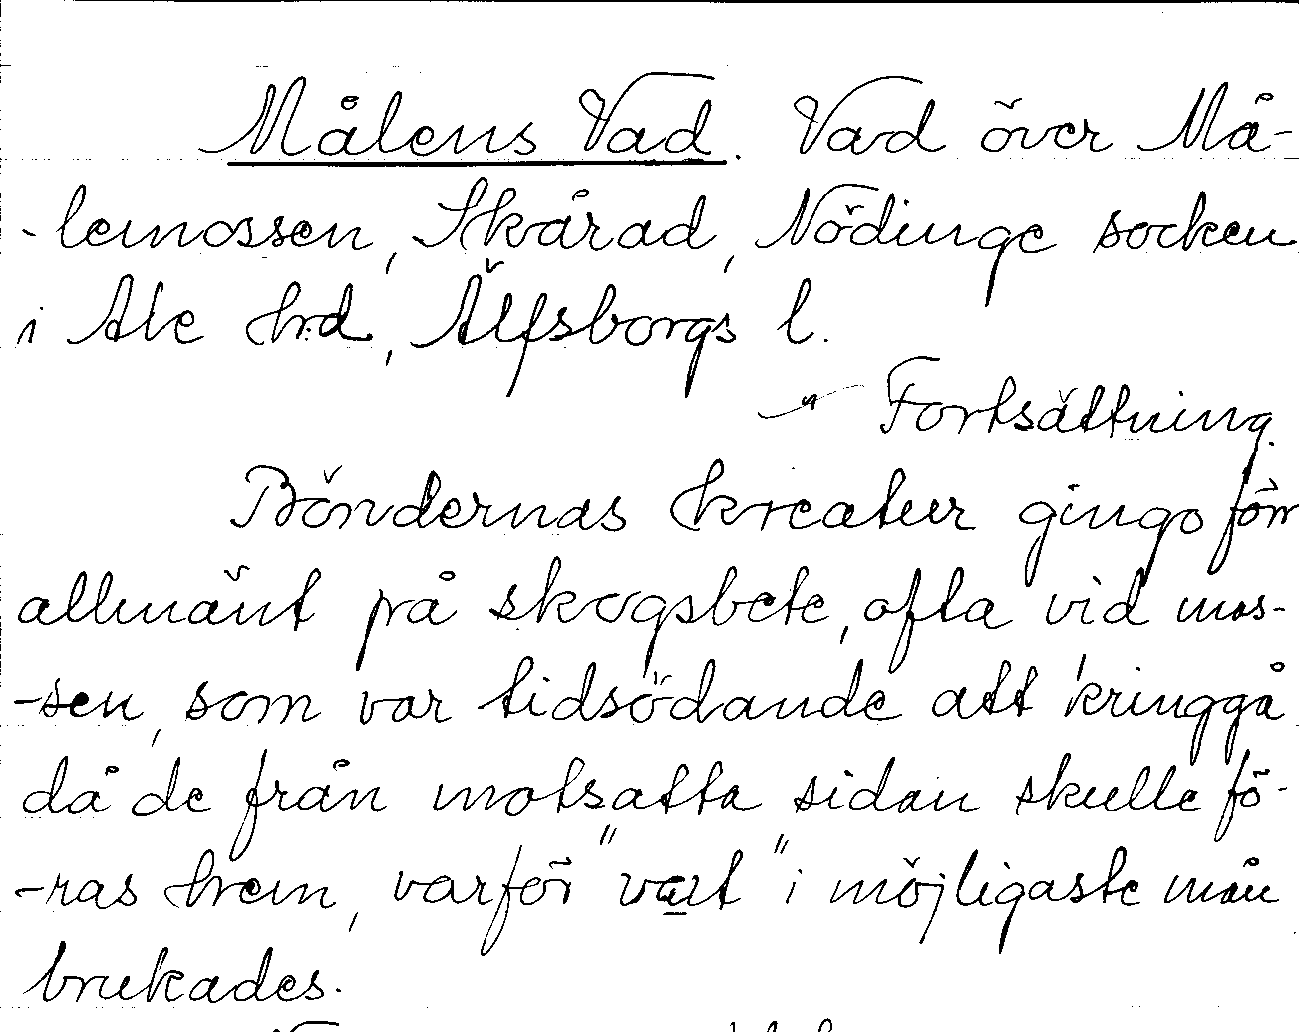 Målens Vad. Vad över Må-
-lemossen, Skårad, Nödinge socken
i Ale hrd, Älfsborgs l.
Fortsättning.
Böndernas kreatur gingo förr
allmänt på skogsbete, ofta vid mos-
-sen, som var tidsödande att kringgå
då de från motsatta sidan skulle fö-
-ras hem, varför "vart" i möjligaste mån
brukades.